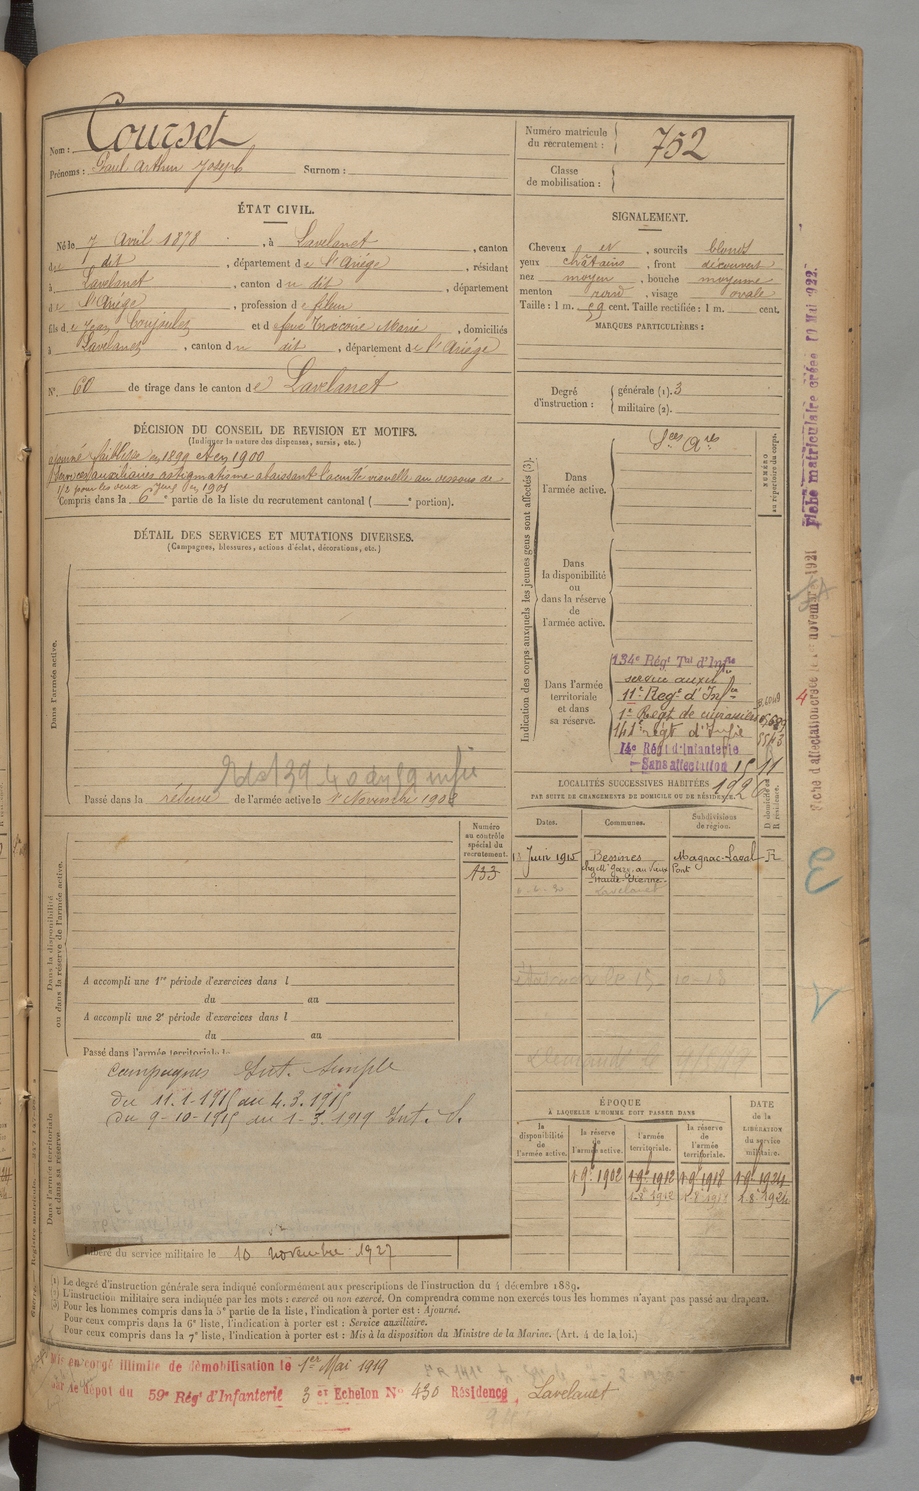 Nom : Courset
Prénoms : Paul Arthur Joseph Surnom :
Numéro matricule du recrutement : 752
Classe de mobilisation :
ÉTAT CIVIL.
Né le 7 Avril 1878, à Lavelanet, canton
du dit, département de l'Ariège, résidant
à Lavelanet, canton du dit, département
de l'Ariège, profession de fileur
fils de Jean et de feue Marie, domiciliés
à Lavelanet, canton du dit, département de l'Ariège
N° 60 de tirage dans le canton de Lavelanet
SIGNALEMENT.
Cheveux et, sourcils blonds
yeux châtains, front découvert
nez moyen, bouche moyenne
menton rond, visage ovale
Taille : 1 m. 59 cent. Taille rectifiée : 1 m. cent.
MARQUES PARTICULIÈRES :
Degré d'instruction : générale (1). 3
militaire (2).
DÉCISION DU CONSEIL DE REVISION ET MOTIFS.
(Indiquer la nature des dispenses, sursis, etc.)
ajourné faiblesse en 1899 et en 1900
Services auxiliaires astigmatisme abaissant l'acuité visuelle au dessous de
1/2 pour les deux yeux en 1901
Compris dans la 6e partie de la liste du recrutement cantonal ( e portion).
DÉTAIL DES SERVICES ET MUTATIONS DIVERSES.
(Campagnes, blessures, actions d'éclat, décorations, etc.)
Dans l'armée active.
Passé dans la réserve de l'armée active le 1er Novembre 1902
Numéro au contrôle spécial du recrutement.
133
Dans la disponibilité ou dans la réserve de l'armée active.
A accompli une 1re période d'exercices dans l
du au
A accompli une 2e période d'exercices dans l
du au
Passé dans l'armée territoriale le
Campagnes Int. Simple
du 11-1-1915 au 4.3.1915
du 9-10-1915 au 1-3.1919 Int. S.
Dans l'armée territoriale et dans sa réserve.
Libéré du service militaire le 10 novembre 1927
Indication des corps auxquels les jeunes gens sont affectés (3).
NUMÉRO au répertoire du corps.
Dans l'armée active.
Dans la disponibilité ou dans la réserve de l'armée active.
Dans l'armée territoriale et dans sa réserve.
134e Régt Tal d'Infie
service auxil
11e Regt d'Infie
1er Régt de cuirassiers
141e régt d'Infie
14e Régt d'Infanterie
Sans affectation 15 11
1926
LOCALITÉS SUCCESSIVES HABITÉES
PAR SUITE DE CHANGEMENTS DE DOMICILE OU DE RÉSIDENCE.
Dates. Communes. Subdivisions de région. D domicile ou R résidence.
Juin 1915 Bessines Magnac-Laval R
Lavelanet
ÉPOQUE
À LAQUELLE L'HOMME DOIT PASSER DANS
DATE de la LIBÉRATION du service militaire.
la disponibilité de l'armée active.
la réserve de l'armée active.
l'armée territoriale.
la réserve de l'armée territoriale.
1 9e 1902 1 9e 1912 1 9e 1918 1 9e 1924
(1) Le degré d'instruction générale sera indiqué conformément aux prescriptions de l'instruction du 4 décembre 1889.
(2) L'instruction militaire sera indiquée par les mots : exercé ou non exercé. On comprendra comme non exercés tous les hommes n'ayant pas passé au drapeau.
(3) Pour les hommes compris dans la 5e partie de la liste, l'indication à porter est : Ajourné.
Pour ceux compris dans la 6e liste, l'indication à porter est : Service auxiliaire.
Pour ceux compris dans la 7e liste, l'indication à porter est : Mis à la disposition du Ministre de la Marine. (Art. 4 de la loi.)
Mis en congé illimité de démobilisation le 1er Mai 1919
par le dépôt du 59e Régt d'Infanterie 3e Echelon N° 430 Résidence Lavelanet
Fiche matriculaire créée 10 Mai 1922.
Fiche d'affectation créée le novembre 1921